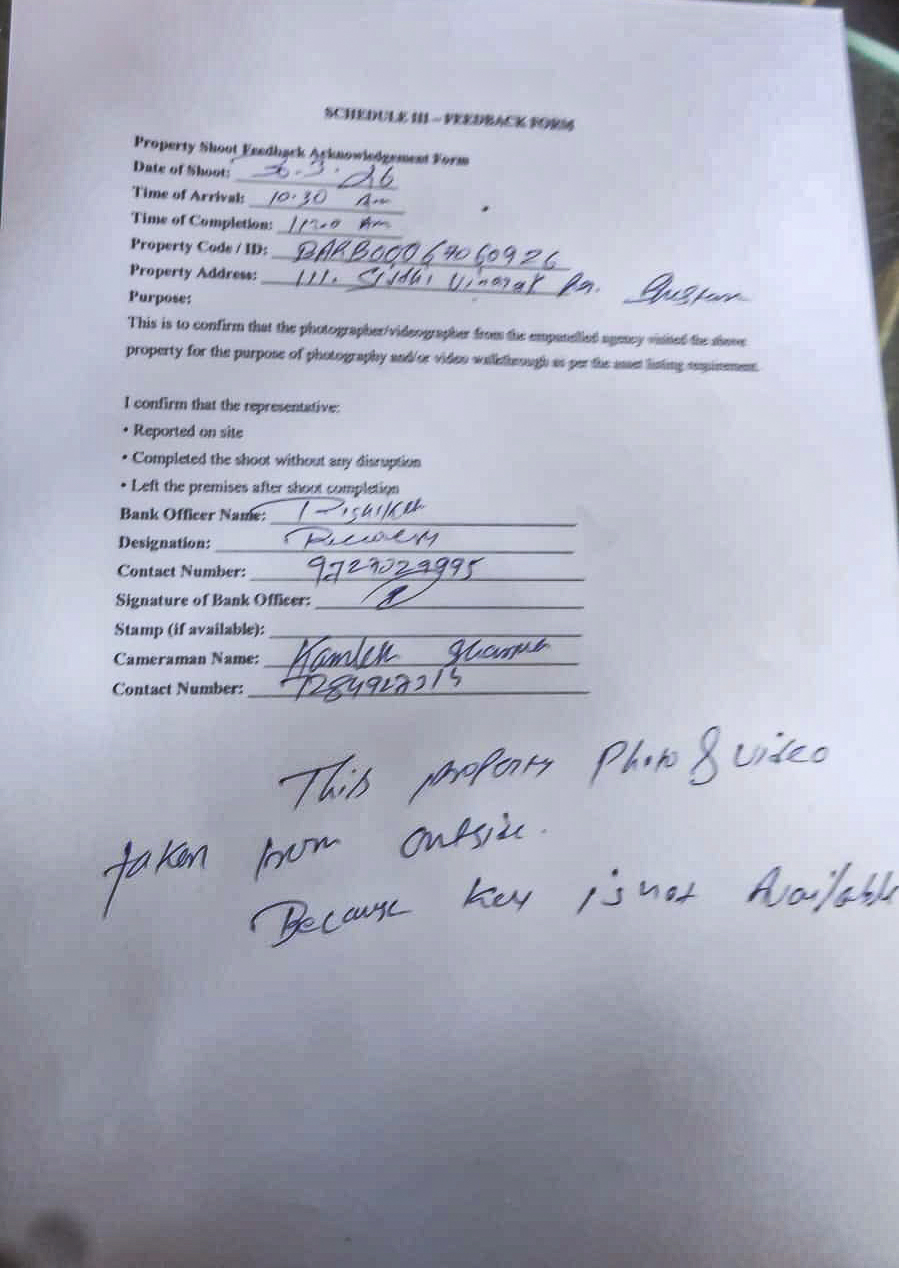 SCHEDULE III – FEEDBACK FORM
Property Shoot Feedback Acknowledgement Form
Date of Shoot: .3.26
Time of Arrival: 10.30 Am
Time of Completion: Am
Property Code / ID: BARB00069060926
Property Address: 111, Siddhi Vinayak
Purpose:
This is to confirm that the photographer/videographer from the empanelled agency visited the above
property for the purpose of photography and/or video walkthrough as per the asset listing requirement.
I confirm that the representative:
• Reported on site
• Completed the shoot without any disruption
• Left the premises after shoot completion
Bank Officer Name:
Designation: Recovery
Contact Number:
Signature of Bank Officer:
Stamp (if available):
Cameraman Name: Kamlesh
Contact Number:
This property Photo & video
taken from outside.
Because key is not Available